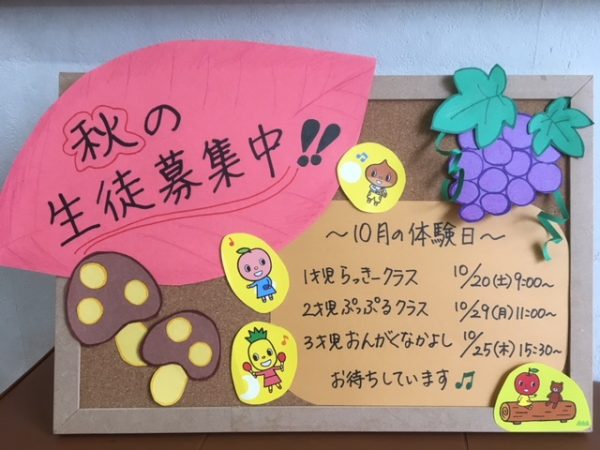 秋の
生徒募集中!!
〜10月の体験日〜
1才児 らっきークラス 10/20(土)9:00〜
2才児 ぷっぷるクラス 10/29(月)11:00〜
3才児 おんがくなかよし 10/25(木)15:30〜
お待ちしています♫